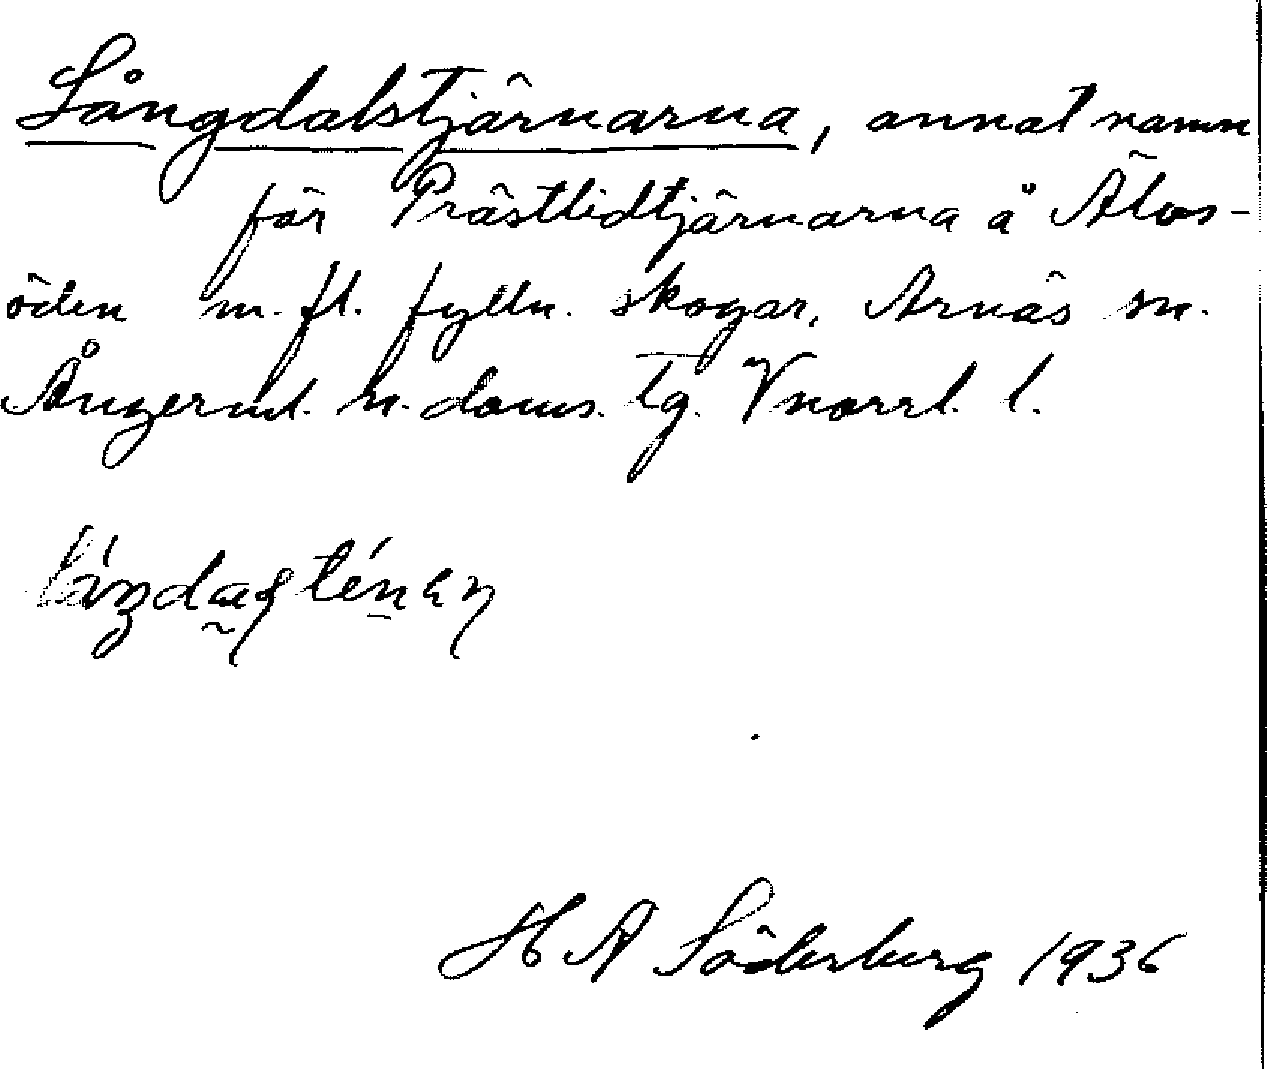 Långdalstjärnarna, annat namn
för Prästlidtjärnarna å Älvs-
öden m. fl. fylln. skogar, Arnäs sn.
Ångerml. n. doms. tg. Vnorrl. l.
H A Söderberg 1936